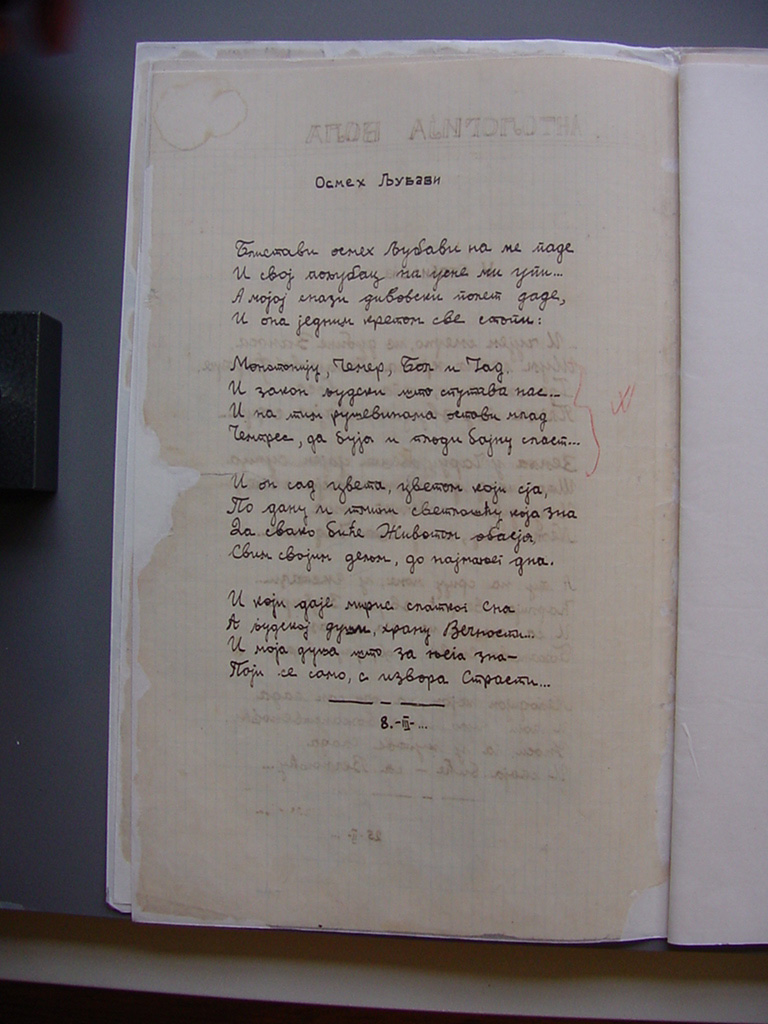 Осмех Љубави
Блистави осмех Љубави на ме паде
И свој пољубац на усне ми упи...
А мојој снази дивовски полет даде,
И она једним кретом све стопи:
Монотонију, Чемер, Бол и Јад.
И закон људски што спутава нас...
И на тим рушевинама остави млад
Чемпрес, да буја и плоди бајну сласт...
И он сад цвета, цветом који сја,
По дану и тмини светлошћу која зна
За свако биће Животом обасја
Свим својим делом, до најмањег дна.
И који даје мирис слатког Сна
А људској души, храну Вечности...
И моја душа што за њега зна—
Поји се само, с извора Страсти...
8.-III-...